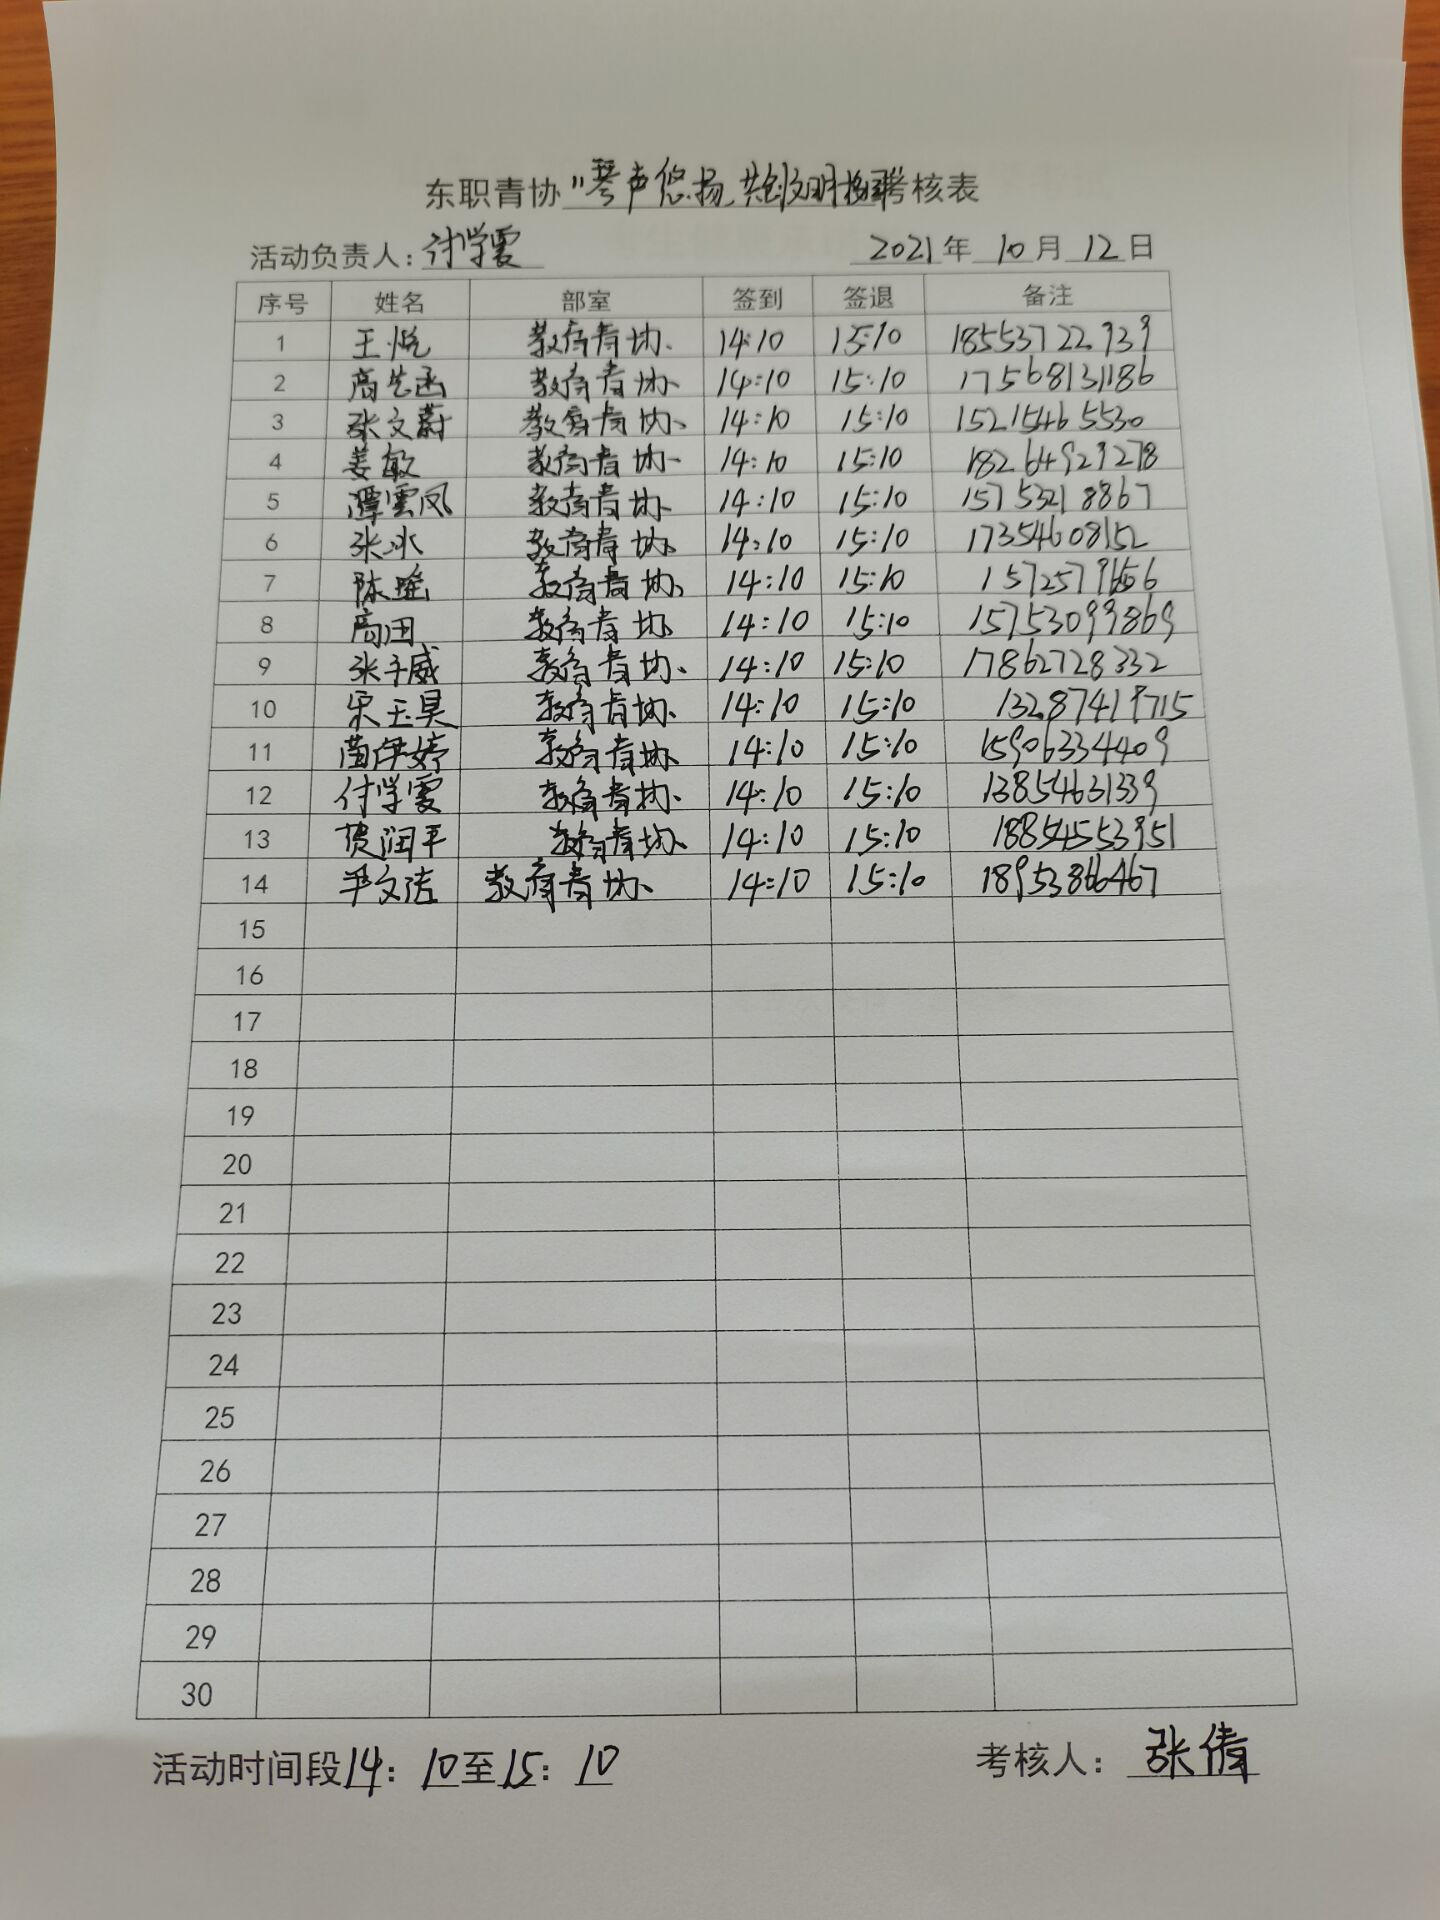 东职青协"琴声悠扬,共创文明校园"考核表
活动负责人:付学霞 2021年 10月 12日
序号 姓名 部室 签到 签退 备注
1 王悦 教育青协 14:10 15:10 18553722939
2 高艺函 教育青协 14:10 15:10 17568131186
3 张文蔚 教育青协 14:10 15:10 15215465530
4 姜敏 教育青协 14:10 15:10 18264929278
5 谭雲凤 教育青协 14:10 15:10 15753218867
6 张冰 教育青协 14:10 15:10 17354608152
7 陈瑶 教育青协 14:10 15:10
8 高田 教育青协 14:10 15:10 15753099869
9 张子威 教育青协 14:10 15:10 17862728332
10 宋玉昊 教育青协 14:10 15:10 13287419715
11 苗伊婷 教育青协 14:10 15:10 15906334409
12 付学霞 教育青协 14:10 15:10 13854631339
13 贾润平 教育青协 14:10 15:10 18854553951
14 文洁 教育青协 14:10 15:10 18953866467
15
16
17
18
19
20
21
22
23
24
25
26
27
28
29
30
活动时间段14:10至15:10 考核人:张倩